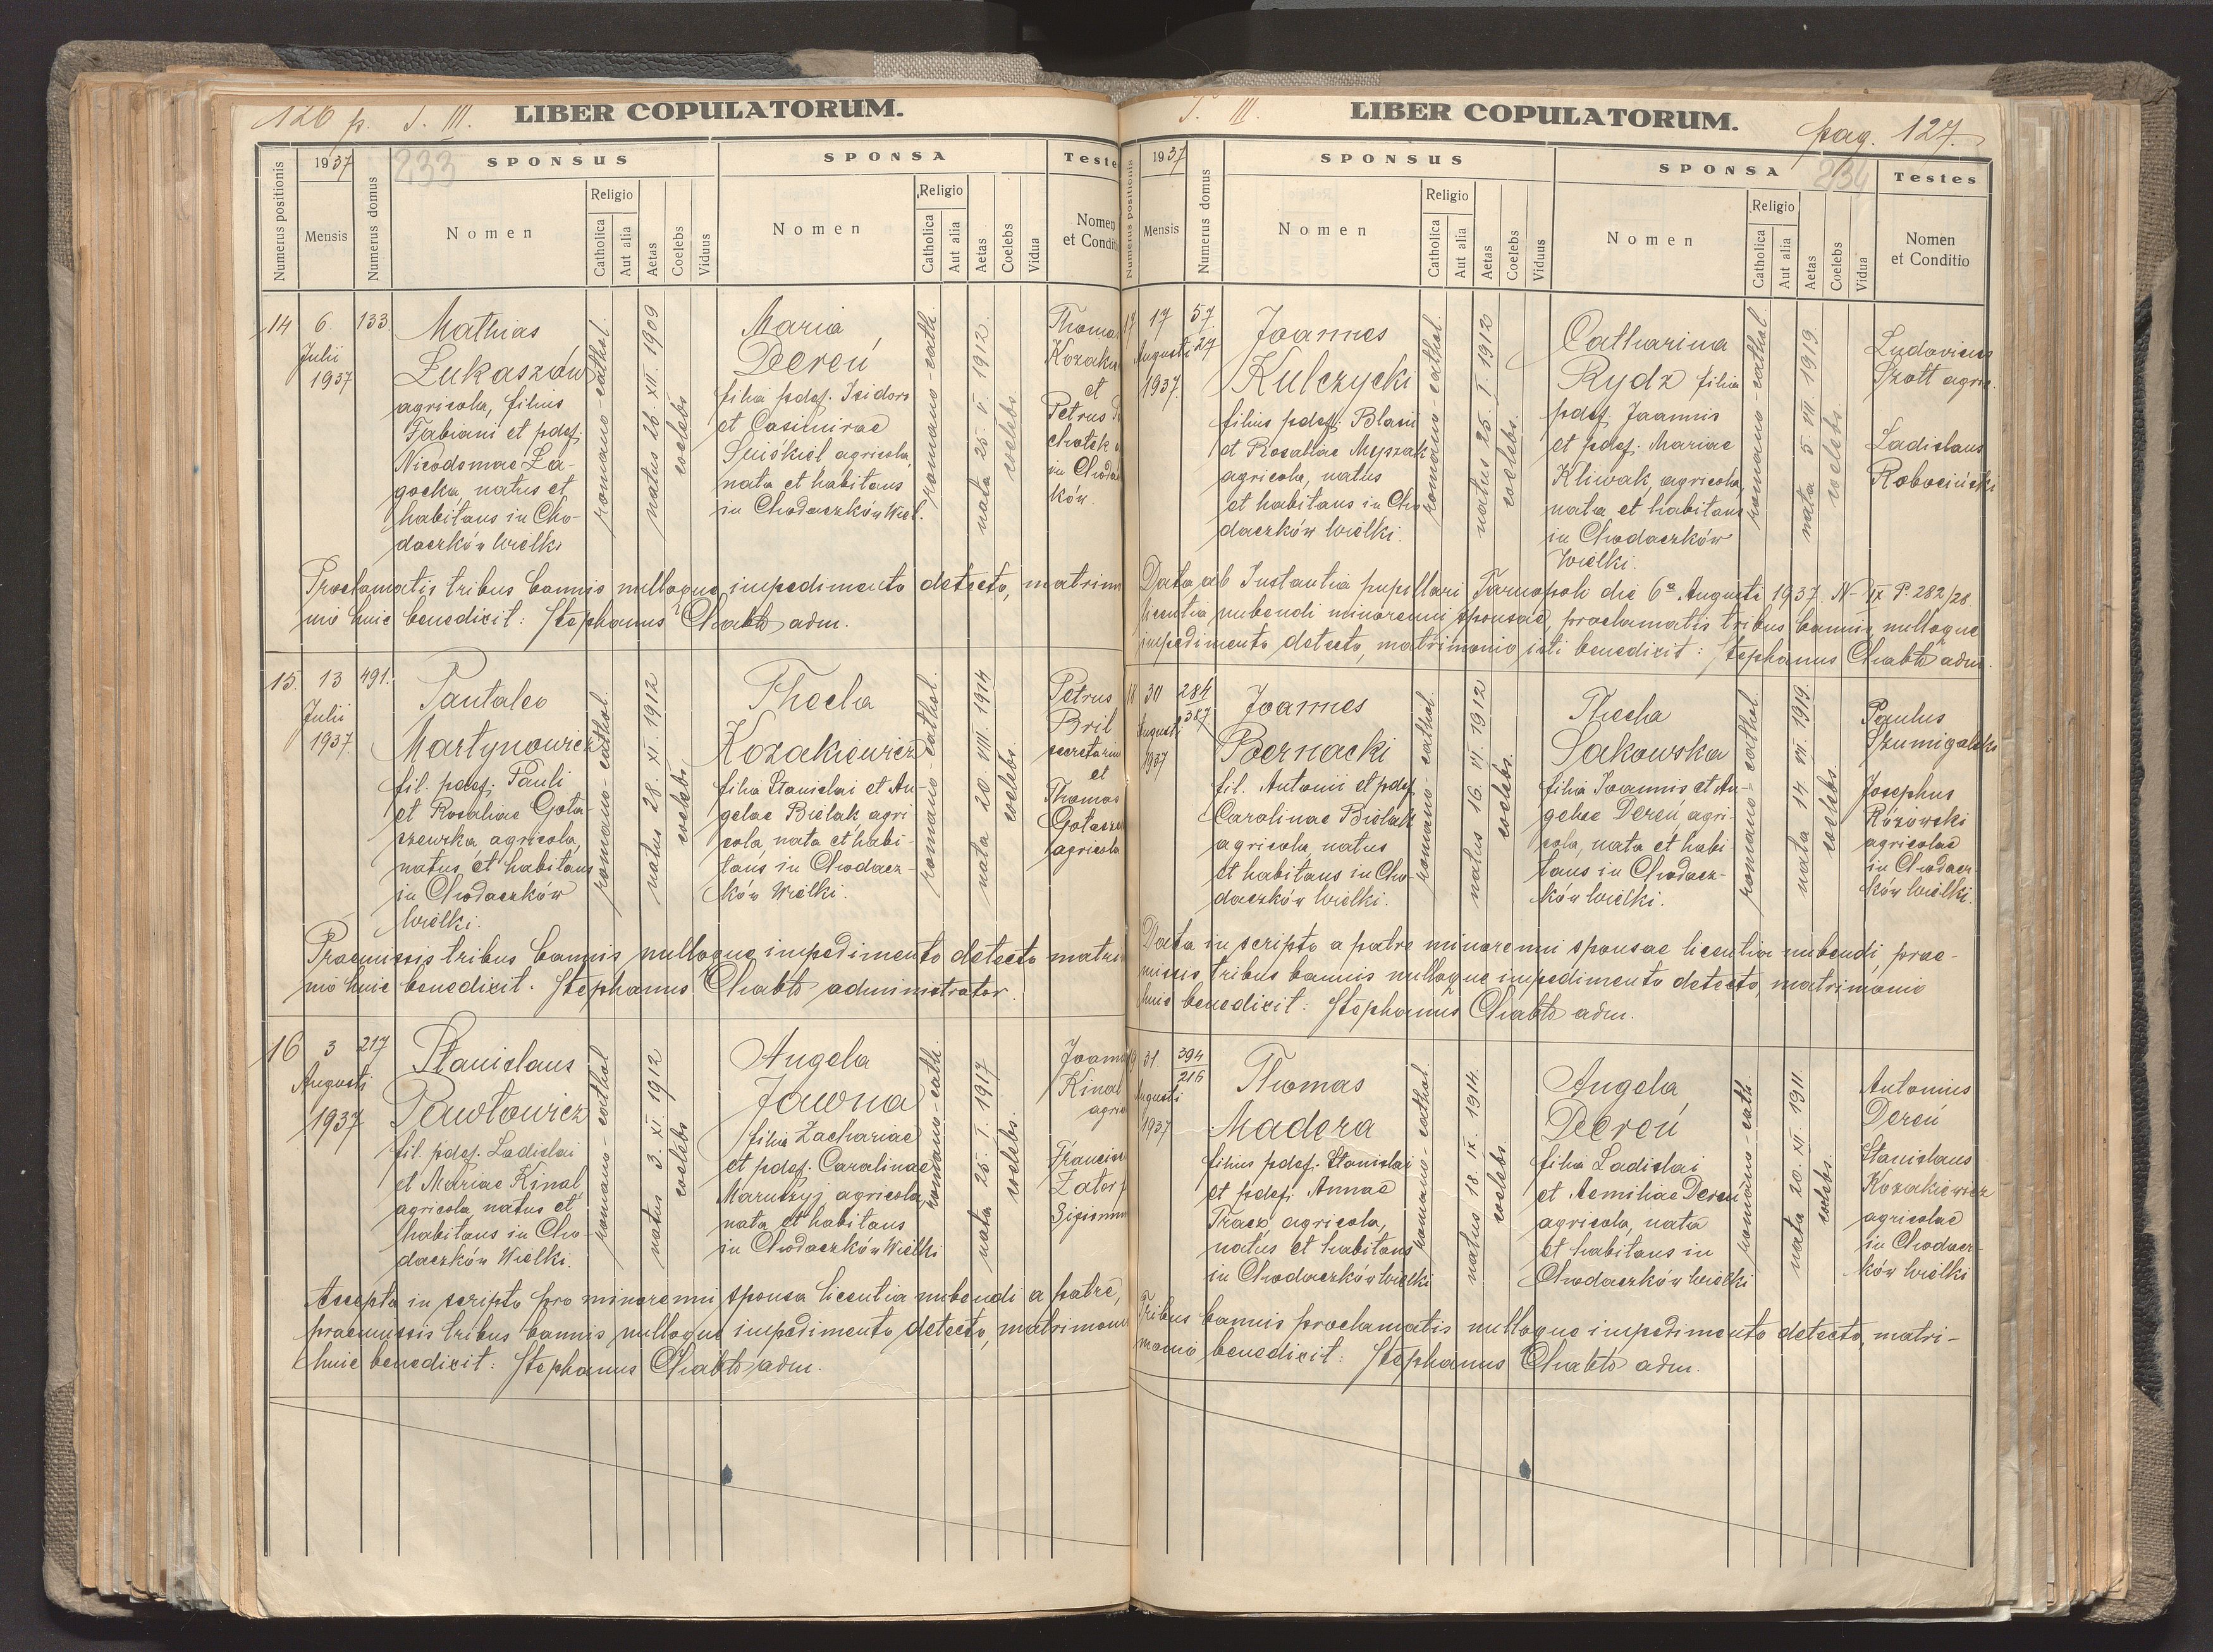 126 p. T. III. LIBER COPULATORUM.
233
Numerus positionis
1937
Mensis
Numerus domus
SPONSUS
Nomen
Religio
Catholica
Aut alia
Aetas
Coelebs
Viduus
SPONSA
Nomen
Religio
Catholica
Aut alia
Aetas
Coelebs
Vidua
Teste
Nomen
et Conditi
14
6.
Julii
1937
133.
Mathias
Łukaszów
agricola, filius
Fabiani et pdef.
Nicodemae Za-
gocka, natus et
habitans in Cho-
daczków Wielki
romano-cathol.
natus 26. XII. 1909
coelebs
Maria
Dereń
filia pdef. Isidori
et Casimirae
agricola,
nata et habitans
in Chodaczków Wiel.
romano-cath.
nata 25. V. 1912.
coelebs.
Thoma
Kozaki
et
Petrus
in Choda
ków.
Proclamatis tribus bannis nulloque impedimento detecto, matrim
nio huic benedixit: Stephanus Chabło adm.
15.
13
Julii
1937.
491.
Pantaleo
Martynowicz
fil. pdef. Pauli
et Rosaliae Goła-
szewska, agricola,
natus et habitans
in Chodaczków
Wielki.
romano-cathol.
natus 28. XI. 1912
coelebs
Thecla
Kozakiewicz
filia Stanislai et An-
gelae Bielak agri
cola, nata et habi-
tans in Chodacz-
ków Wielki.
romano-cathol.
nata 20. VIII 1914
coelebs
Petrus
Bril
secretarius
et
Thomas
Gołasze
agricola
Praemissis tribus bannis nulloque impedimento detecto matri
nio huic benedixit. Stephanus Chabło administrator.
16
3
Augusti
1937
217
Stanislaus
Pawłowicz
fil. pdef. Ladislai
et Mariae Kinal
agricola, natus et
habitans in Cho-
daczków Wielki.
romano-cathol
natus 3. XI. 1912
coelebs
Angela
Jawna
filia Zachariae
et pdef. Carolinae
Maruszyj agricola,
nata et habitans
in Chodaczków Wielki
romano-cath.
nata 25. I. 1917
coelebs.
Joann
Kinal
agri
Francis
Zator
Sigismu
Accepta in scripto pro minorenni sponsa licentia nubendi a patre,
praemissis tribus bannis nulloque impedimento detecto, matrimoni
huic benedixit: Stephanus Chabło adm.
T. III. LIBER COPULATORUM. pag. 127.
234
Numerus positionis
1937
Mensis
Numerus domus
SPONSUS
Nomen
Religio
Catholica
Aut alia
Aetas
Coelebs
Viduus
SPONSA
Nomen
Religio
Catholica
Aut alia
Aetas
Coelebs
Vidua
Testes
Nomen
et Conditio
17
17
Augusti
1937.
57
27
Joannes
Kulczycki
filius pdef. Blasii
et Rosaliae
agricola, natus
et habitans in Cho
daczków Wielki.
romano cathol.
natus 25. I. 1912
coelebs.
Catharina
Rydz filia
pdef. Joannis
et pdef. Mariae
Kliwak, agricola,
nata et habitans
in Chodaczków
Wielki.
romano-cathol.
nata 5. VIII. 1919
coelebs.
Ludovicus
Szott agric.
Ladislaus
Robociński
Data ab Instantia pupillari Tarnopoli die 6a Augusti 1937. N- IX P. 282/28
licentia nubendi minorenni sponsae, proclamatis tribus bannis nulloque
impedimento detecto, matrimonio isti benedixit: Stephanus Chabło adm.
18
30
Augusti
1937
284
387
Joannes
Biernacki
fil. Antonii et pdef.
Carolinae Bielak
agricola, natus
et habitans in Cho-
daczków Wielki.
romano-cathol.
natus 16. VI. 1912
coelebs.
Thecla
Sakowska
filia Joannis et An-
gelae Dereń agri-
cola, nata et habi-
tans in Chodacz-
ków Wielki.
romano-cathol.
nata 14. VII. 1919
coelebs.
Paulus
Szumigalski
Josephus
Różowski
agricolae
in Chodacz-
ków Wielki.
Data in scripto a patre minorenni sponsae licentia nubendi, prae-
missis tribus bannis nulloque impedimento detecto, matrimonio
huic benedixit: Stephanus Chabło adm.
19
31.
Augusti
1937
394
216
Thomas
Madera
filius pdef. Stanislai
et pdef. Annae
Tracz, agricola,
natus et habitans
in Chodaczków Wielki
romano-cathol.
natus 18. IX. 1914.
coelebs
Angela
Dereń
filia Ladislai
et Aemiliae Dereń
agricola, nata
et habitans in
Chodaczków Wielki
romano-cath.
nata 20. XII. 1911.
coelebs.
Antonius
Dereń
Stanislaus
Kozakiewicz
agricolae
in Chodacz-
ków Wielki
Tribus bannis proclamatis nulloque impedimento detecto, matri-
monio benedixit: Stephanus Chabło adm.